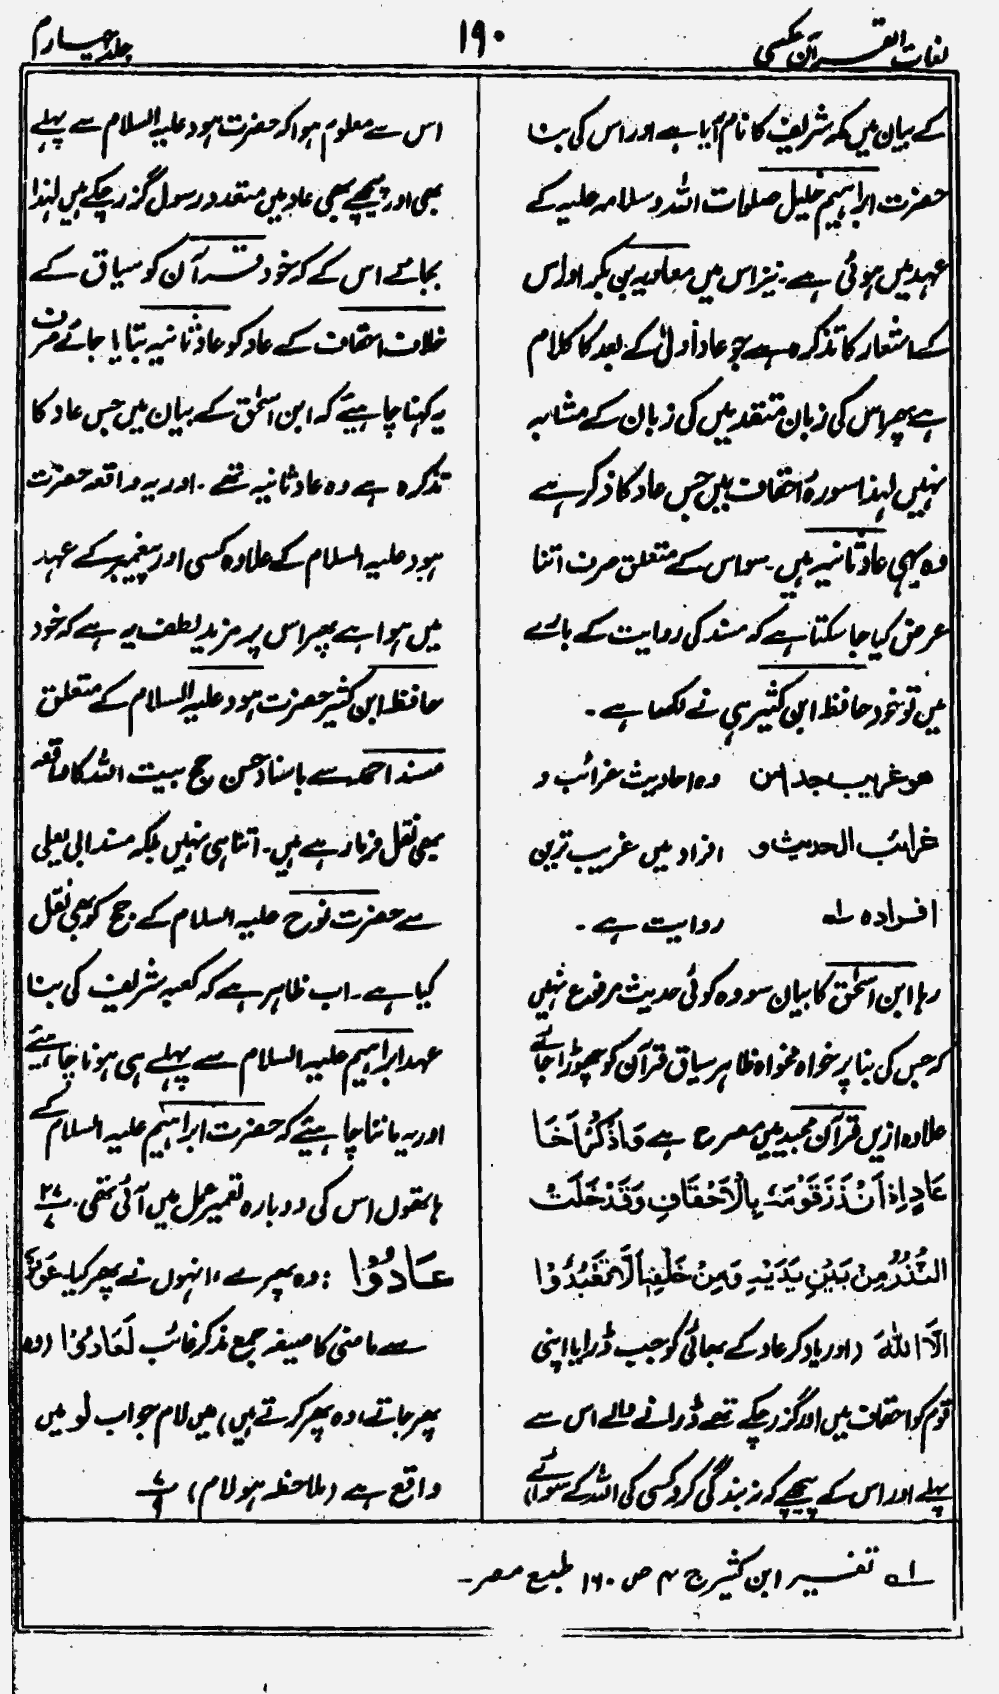 لغات القرآن عکسی
۱۹۰
جلد چہارم
کے بیان میں مکہ شریف کا نام آیا ہے اور اس کی بنا
حضرت ابراہیم خلیل صلوات اللہ وسلامہ علیہ کے
عہد میں ہوئی ہے۔ نیز اس میں معاویہ بن بکر اور اس
کے اشعار کا تذکرہ ہے جو عاد اولیٰ کے بعد کا کلام
ہے پھر اس کی زبان متقدمین کی زبان کے مشابہ
نہیں لہذا سورۂ احقاف میں جس عاد کا ذکر ہے
وہ یہی عاد ثانیہ ہیں۔ سو اس کے متعلق صرف اتنا
عرض کیا جا سکتا ہے کہ مسند کی روایت کے بارے
میں تو خود حافظ ابن کثیر ہی نے لکھا ہے۔
ھو غریب جدا من وہ احادیث غرائب و
غرائب الحدیث و افراد میں غریب ترین
افرادہ لہ روایت ہے۔
رہا ابن اسحٰق کا بیان سو وہ کوئی حدیث مرفوع نہیں
کہ جس کی بنا پر خواہ مخواہ ظاہر سیاق قرآن کو چھوڑا جائے
علاوہ ازیں قرآن مجید میں مصرح ہے وَاذْكُرْ اَخَا
عَادٍ اِذْ اَنْذَرَ قَوْمَهٗ بِالْاَحْقَافِ وَقَدْ خَلَتِ
النُّذُرُ مِنْ بَيْنِ يَدَيْهِ وَمِنْ خَلْفِهٖ اَلَّا تَعْبُدُوْا
اِلَّا اللّٰهَ (اور یاد کر عاد کے بھائی کو جب ڈرایا اپنی
قوم کو احقاف میں اور گزر چکے تھے ڈرانے والے اس سے
پہلے اور اس کے پیچھے کہ نہ بندگی کرو کسی کی اللہ کے سوائے)
اس سے معلوم ہوا کہ حضرت ہود علیہ السلام سے پہلے
بھی اور پیچھے بھی عاد میں متعدد رسول گزر چکے ہیں لہٰذا
بجائے اس کے کہ خود قرآن کو سیاق کے
خلاف احقاف کے عاد کو عاد ثانیہ بتایا جائے صرف
یہ کہنا چاہیے کہ ابن اسحٰق کے بیان میں جس عاد کا
تذکرہ ہے وہ عاد ثانیہ تھے۔ اور یہ واقعہ حضرت
ہود علیہ السلام کے علاوہ کسی اور پیغمبر کے عہد
میں ہوا ہے پھر اس پر مزید لطف یہ ہے کہ خود
حافظ ابن کثیر حضرت ہود علیہ السلام کے متعلق
مسند احمد سے باسناد حسن حج بیت اللہ کا واقعہ
بھی نقل فرما رہے ہیں۔ اتنا ہی نہیں بلکہ مسند ابی یعلی
سے حضرت نوح علیہ السلام کے حج کو بھی نقل
کیا ہے۔ اب ظاہر ہے کہ کعبہ شریف کی بنا
عہد ابراہیم علیہ السلام سے پہلے ہی ہونا چاہئیے
اور یہ ماننا چاہئیے کہ حضرت ابراہیم علیہ السلام کے
ہاتھوں اس کی دوبارہ تعمیر عمل میں آئی تھی۔
عَادُوْا : وہ پھرے، انہوں نے پھر کیا۔ عَوْدٌ
سے ماضی کا صیغہ جمع مذکر غائب لَعَادُوْا (وہ
پھر جاتے، وہ پھر کرتے ہیں) میں لام جواب لو میں
واقع ہے (ملاحظہ ہو لام) ۷/۹
لہ تفسیر ابن کثیر ج ۴ ص ۱۶۰ طبع مصر۔